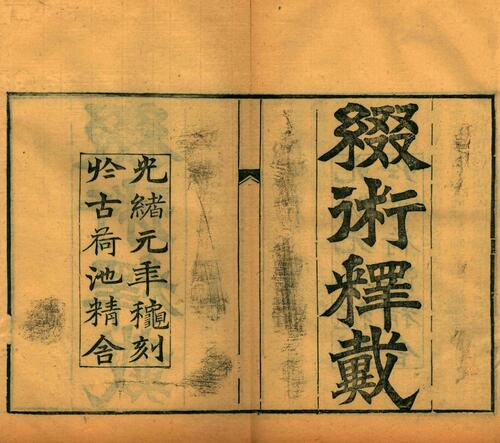 綴術釋戴
光緒元年龝刻
於古荷池精舍